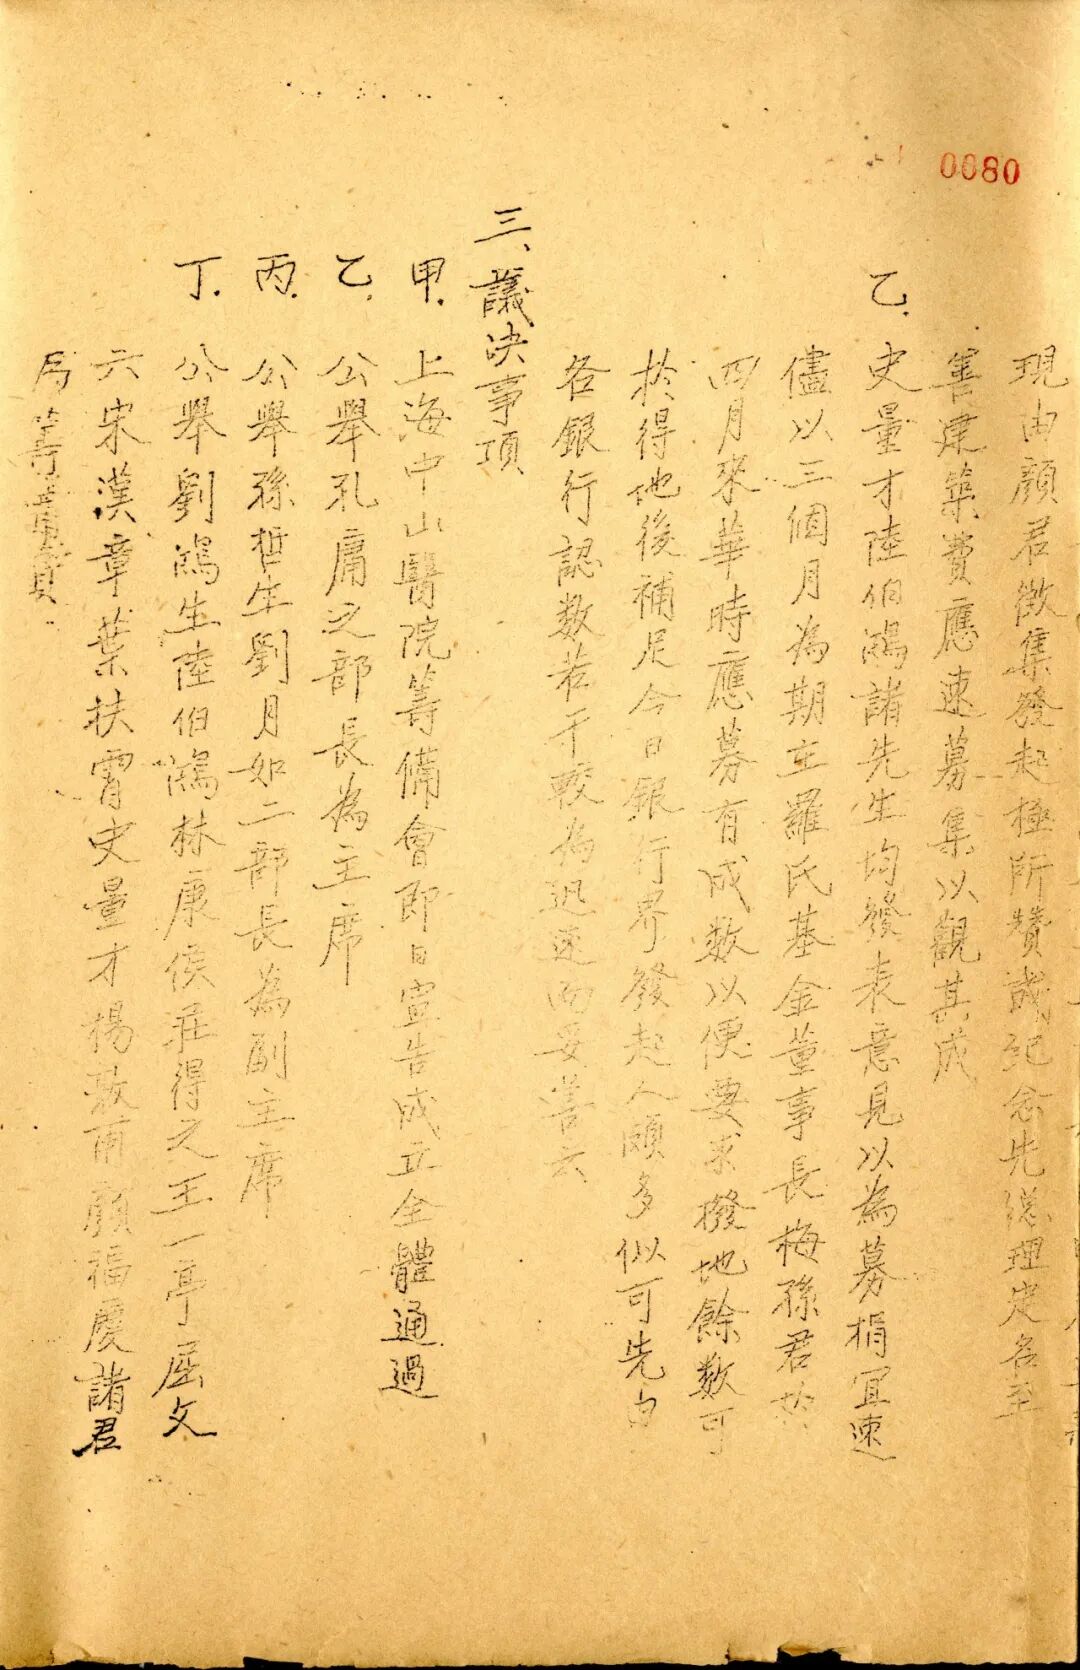 0080
現由顏君徵集發起極所贊成紀念先總理定名至
善建築費應速募集以觀其成
乙.史量才陸伯鴻諸先生均發表意見以為募捐宜速
儘以三個月為期立羅氏基金董事長梅孫君於
四月來華時應募有成數以便要求撥地餘數可
於得地後補足今日銀行界發起人頗多似可先由
各銀行認数若干較為迅速而妥善云
三、議決事項
甲.上海中山醫院籌備會即日宣告成立全體通過
乙.公舉孔庸之部長為主席
丙.公舉孫哲生劉月如二部長為副主席
丁.公舉劉鴻生陸伯鴻林康侯莊得之王一亭屈文
六宋漢章葉扶霄史量才楊敦甫顏福慶諸君
為籌備員